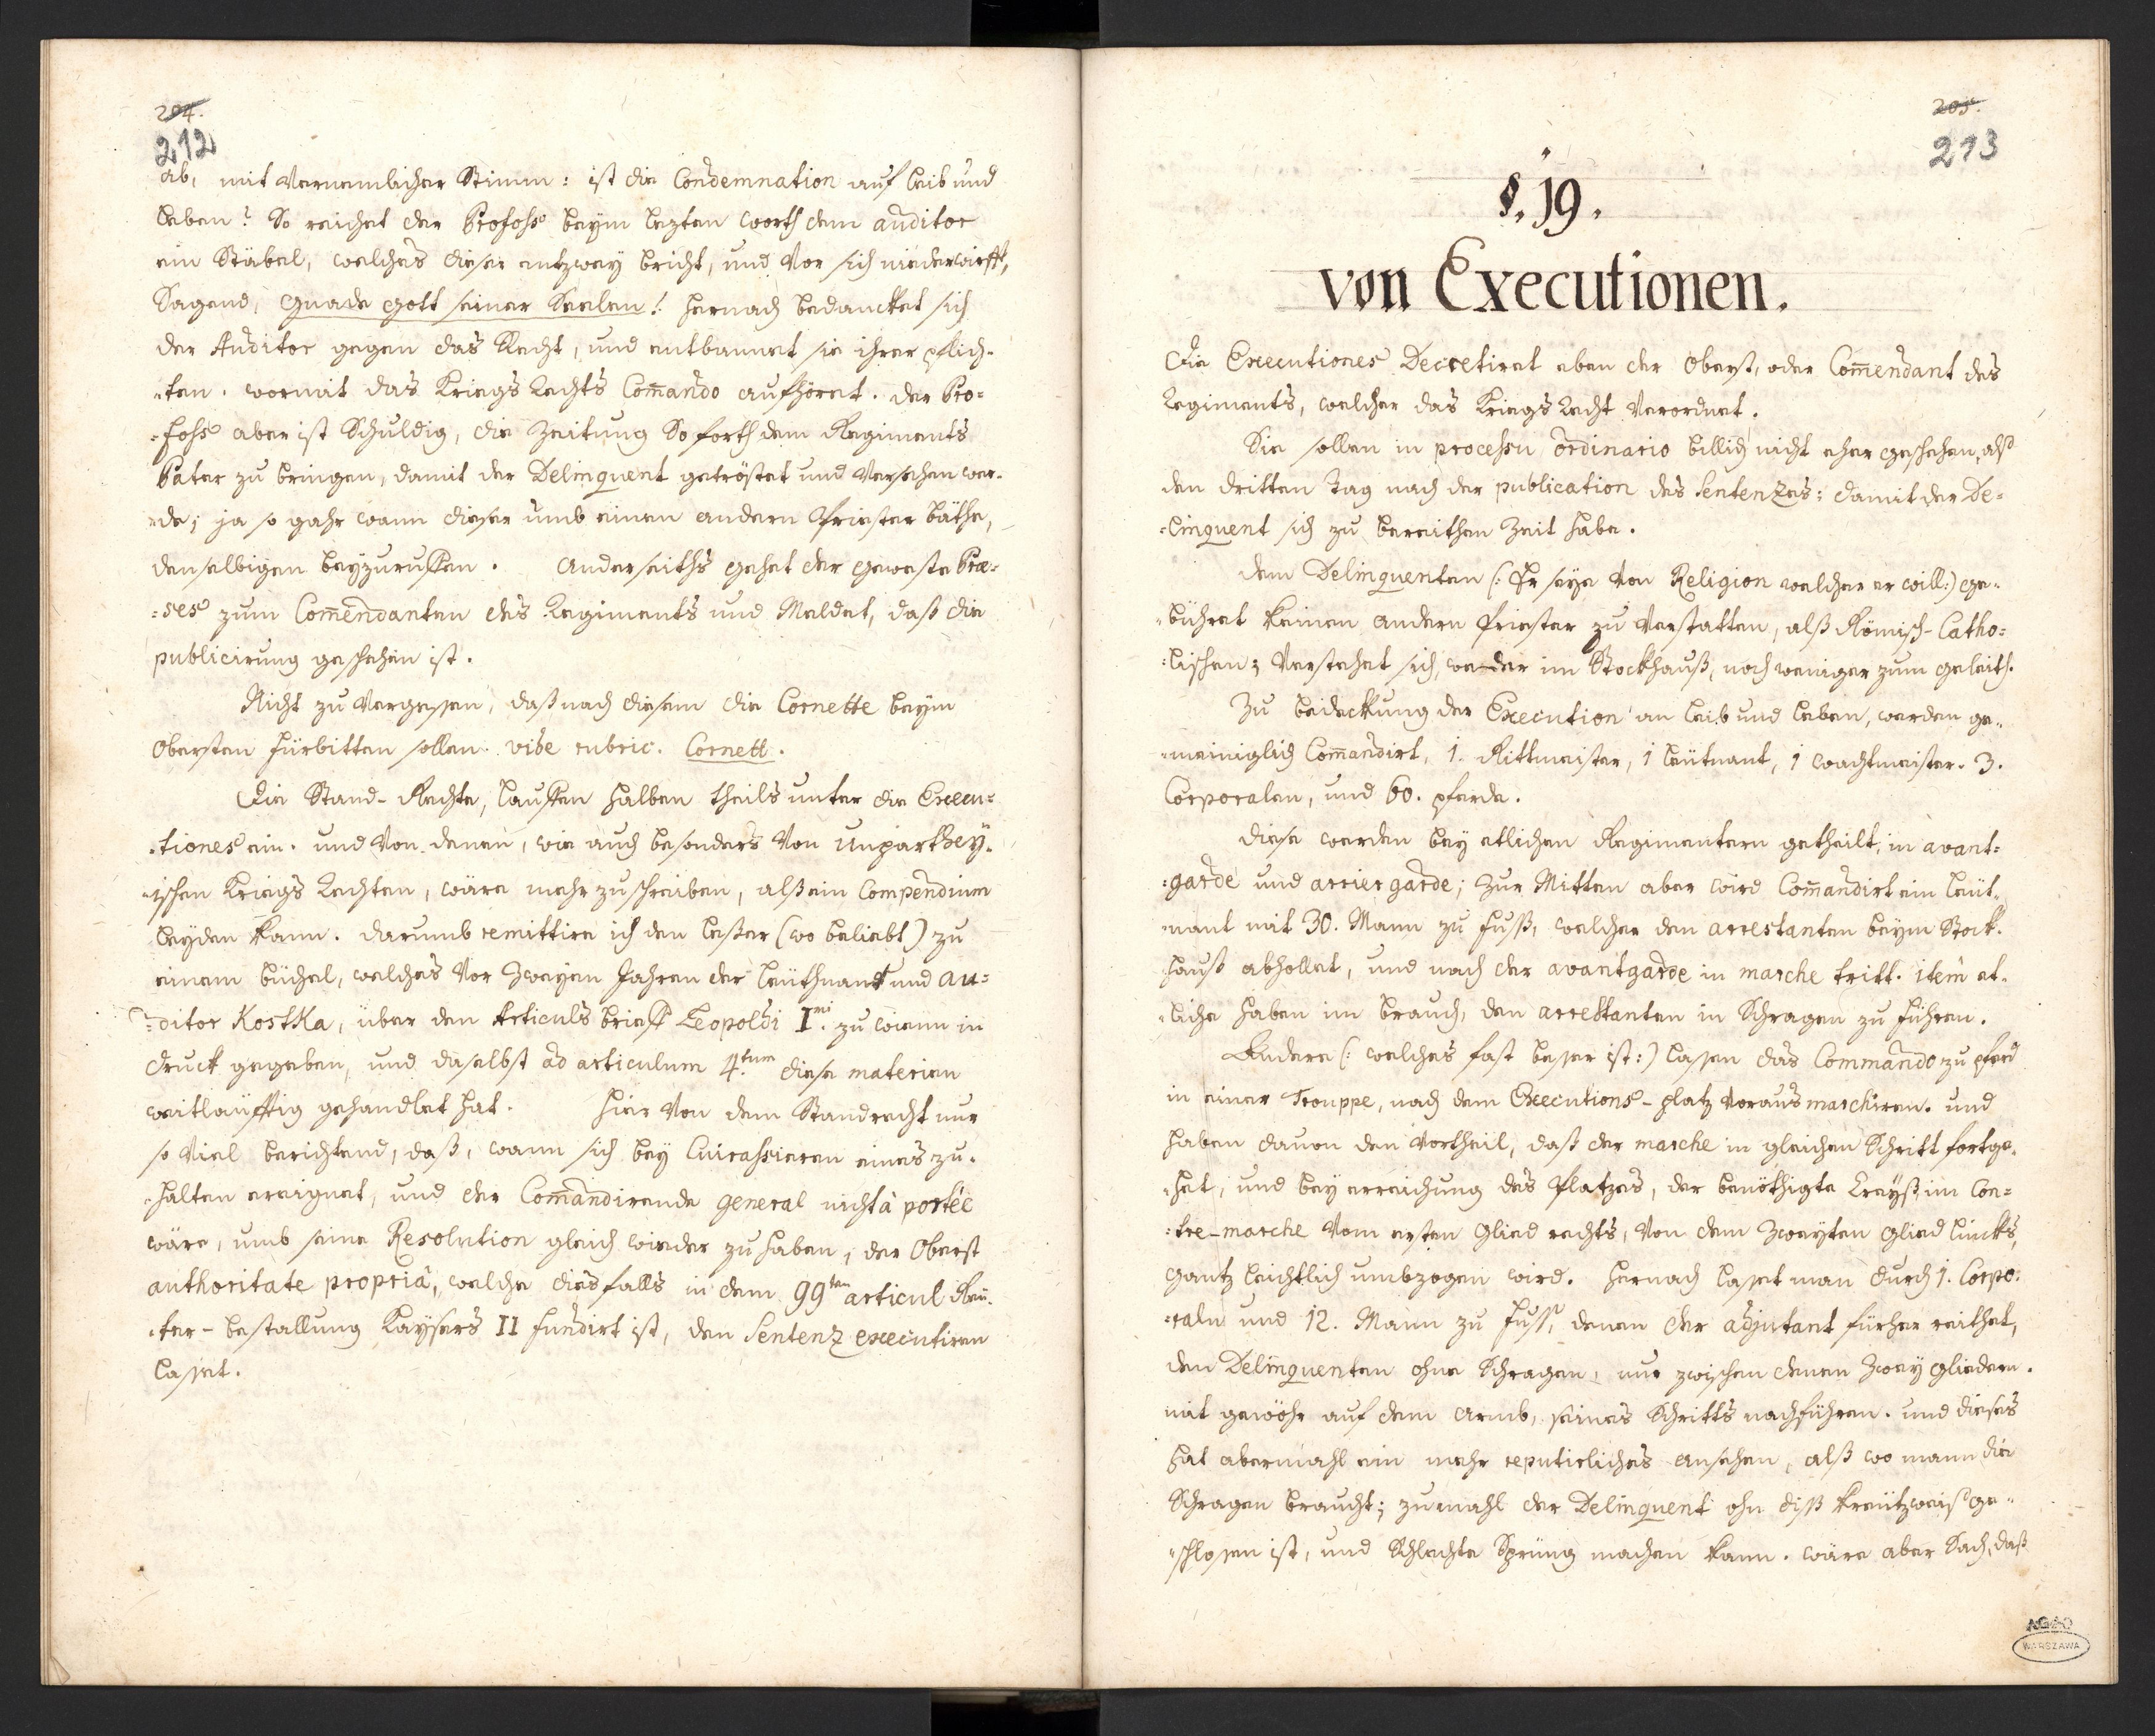 204.
212
ab, mit Vernemblicher Stimm: ist die Condemnation auf leib und
leben? So reichet der Profohs beym lezten worth dem auditor
ein Stäbel, welches dieser entzwey bricht, und Vor sich niderwirfft,
Sagend, Gnade Gott seiner Seelen! Hernach bedancket sich
der Auditor gegen das Recht, und entbannet sie ihrer pflich-
-ten. wormit das Kriegs Rechts Com̄ando aufhöret. Der Pro=
=fohs aber ist Schuldig, die Zeitung So forth dem Regiments
Pater zu bringen, damit der Delinquent getröstet und Versehen wer-
-de; ja so gahr wann dieser umb einen andern Priester bäthe,
denselbigen beyzuruffen. Anderseiths gehet der geweste Præ-
=ses zum Com̄endanten des Regiments und Meldet, daß die
publicirung geschehen ist.
Nicht zu Vergessen, daß nach diesem die Cornette beym
Obersten fürbitten sollen. vide rubric. Cornett.
Die Stand-Rechte, lauffen halben theils unter die Execu=
-tiones ein. und Von denen, wie auch besonders Von Unparthey-
-ischen Kriegs Rechten, wäre mehr zu schreiben, alß ein Compendium
leyden kann. darumb remittire ich den leßer (wo beliebt) zu
einem büchel, welches Vor Zweyen Jahren der leüthnant und au=
=ditor Kostka, über den Articuls brieff Leopoldi I.mi zu Wienn in
druck gegeben, und daselbst ad articulum 4.tum diese materien
weitläuffig gehandlet hat. Hier Von dem Standrecht nur
so Viel berichtend, daß, wann sich bey Cuirassieren eines zu-
-halten ereignet, und der Com̄andirende general nicht à portée
wäre, umb seine Resolution gleich wieder zu haben, der Oberst
authoritate propriâ, welche diesfalls in dem 99ten articul Reü-
-ter-bestallung Kaysers II fundirt ist, den Sentenz executiren
lasset.
205.
213
§. 19.
von Executionen.
Die Executiones Decretiret eben der Oberst, oder Com̄endant des
Regiments, welcher das Kriegs Recht Verordnet.
Sie sollen in processu ordinario billich nicht eher geschehen, alß
den dritten Tag nach der publication des Sentenzes; damit der De=
=linquent sich zu bereithen Zeit habe.
dem Delinquenten (: Er seye Von Religion welcher er will:) ge-
-bühret keinen andern Priester zu Verstatten, alß Römisch-Catho=
=lischen; Verstehet sich, weder im Stockhauß, noch weniger zum geleith.
Zu bedeckung der Execution an leib und leben, werden ge-
-meiniglich Com̄andirt, 1. Rittmeister, 1 leütnant, 1 wachtmeister. 3.
Corporalen, und 60. pferde.
diese werden bey etlichen Regimentern getheilt, in avant=
=garde und arriergarde; Zur Mitten aber wird Com̄andirt ein leüt-
-nant mit 30. Mann zu fuß, welcher den arrestanten beym Stock-
hauß abhollet, und nach der avantgarde in marche tritt. item et-
-liche haben im brauch, den arrestanten in Schragen zu führen.
Andere (: welches fast besser ist:) lassen das Commando zu pferd
in einer Trouppe, nach dem Executions-platz Voraus marchiren. und
haben davon den Vortheil, daß der marche in gleichen Schritt fortge-
-het, und bey erreichung des Platzes, der benöthigte Creyß im Con=
=tre-marche Vom ersten Glied rechts, Von dem Zweyten Glied lincks,
gantz leichtlich umbzogen wird. Hernach lasset man durch 1. Corpo-
-raln und 12. Mann zu fuß, denen der adjutant fürher reithet,
den Delinquenten ohne Schragen, nur zwischen denen Zwey gliedern.
mit gewöhr auf dem armb, seines Schritts nachführen. und dieses
hat abermahl ein mehr reputirliches ansehen, alß wo mann die
Schragen braucht; zumahl der Delinquent ohn diß kreützweiß ge-
-schlossen ist, und Schlechte Sprüng machen kann. wäre aber Sach, daß
AGAD
WARSZAWA